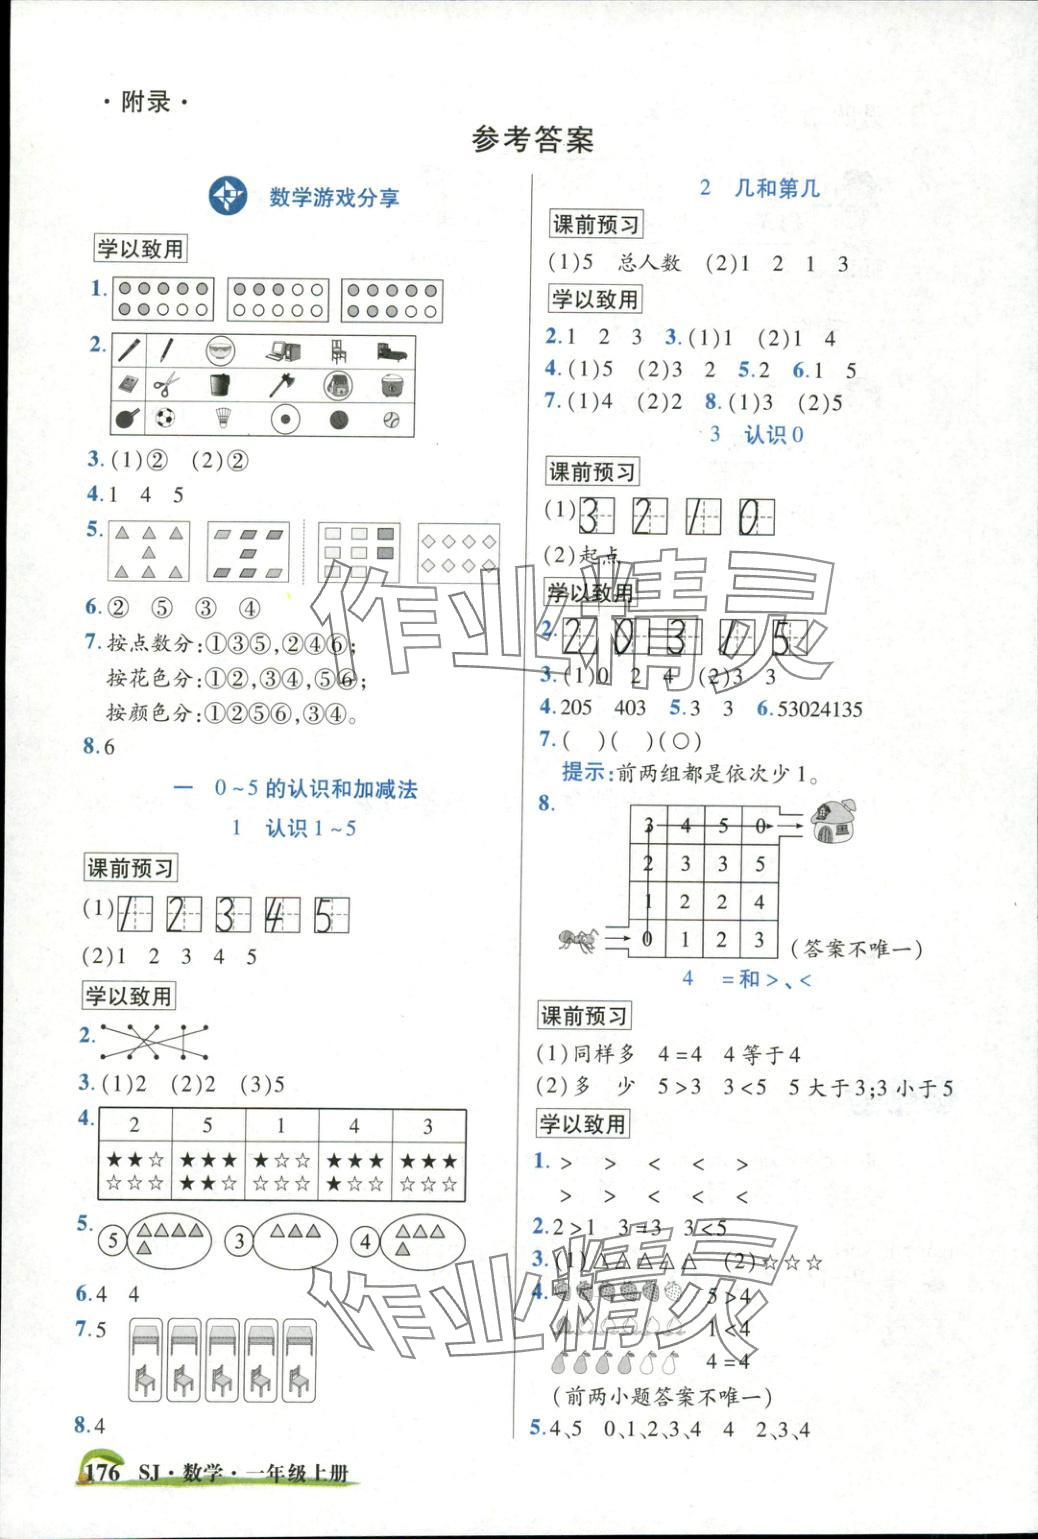 ·附录·
参考答案
数学游戏分享
学以致用
1.
2.
3.(1)② (2)②
4.1 4 5
5.
6.② ⑤ ③ ④
7.按点数分:①③⑤,②④⑥;
按花色分:①②,③④,⑤⑥;
按颜色分:①②⑤⑥,③④。
8.6
一 0~5的认识和加减法
1 认识1~5
课前预习
(1)1 2 3 4 5
(2)1 2 3 4 5
学以致用
2.
3.(1)2 (2)2 (3)5
4.
2 5 1 4 3
★★☆ ★★★ ★☆☆ ★★★ ★★★
☆☆☆ ★★☆ ☆☆☆ ★☆☆ ☆☆☆
5. 5 △△△△△ 3 △△△ 4 △△△△
6.4 4
7.5
8.4
176 SJ·数学·一年级上册
2 几和第几
课前预习
(1)5 总人数 (2)1 2 1 3
学以致用
2.1 2 3 3.(1)1 (2)1 4
4.(1)5 (2)3 2 5.2 6.1 5
7.(1)4 (2)2 8.(1)3 (2)5
3 认识0
课前预习
(1)3 2 1 0
(2)起点
学以致用
2. 2 0 3 1 5
3.(1)0 2 4 (2)3 3
4.205 403 5.3 3 6.53024135
7.( )( )(○)
提示:前两组都是依次少1。
8.
3 4 5 0
2 3 3 5
1 2 2 4
0 1 2 3
(答案不唯一)
4 =和>、<
课前预习
(1)同样多 4=4 4等于4
(2)多 少 5>3 3<5 5大于3;3小于5
学以致用
1. > > < < >
> > < < <
2.2>1 3=3 3<5
3.(1)△△△△△ (2)☆☆☆
4. 5>4
1<4
4=4
(前两小题答案不唯一)
5.4、5 0、1、2、3、4 4 2、3、4
作业精灵
作业精灵